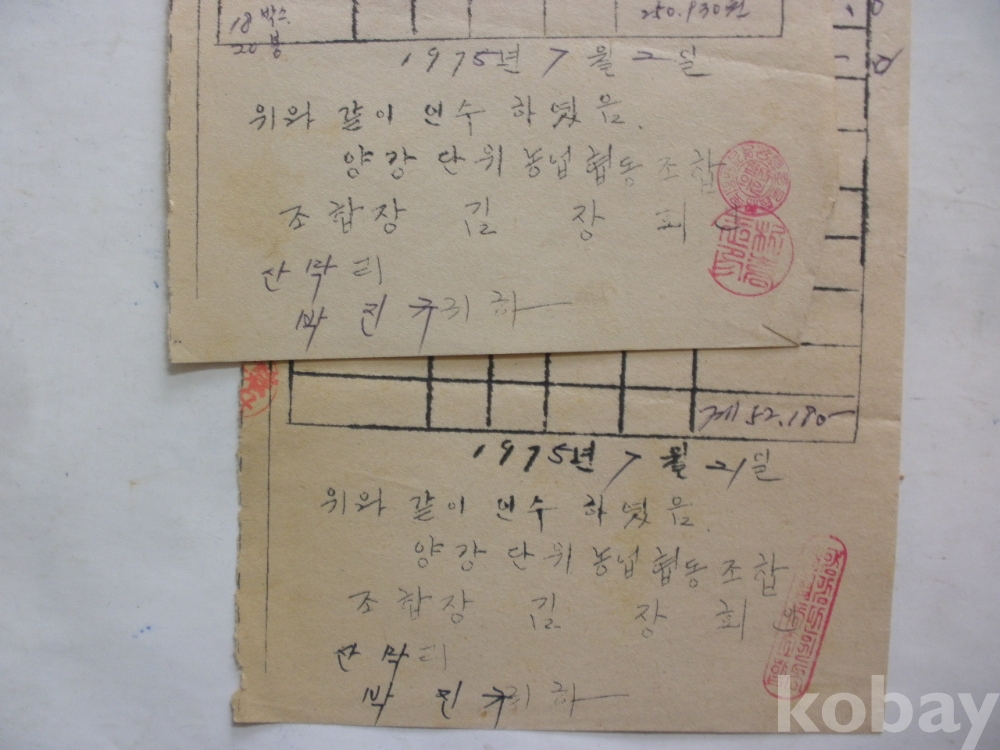 18 박스
20 봉
250.930원
1975년 7월 2일
위와 같이 인수 하였음.
양강 단위 농업 협동 조합
조합장 김 장 회
산막리
박 진 규 귀하
계 52.180-
1975년 7월 21일
위와 같이 인수 하였음.
양강 단위 농업 협동 조합
조합장 김 장 회
산막리
박 진 규 귀하
kobay